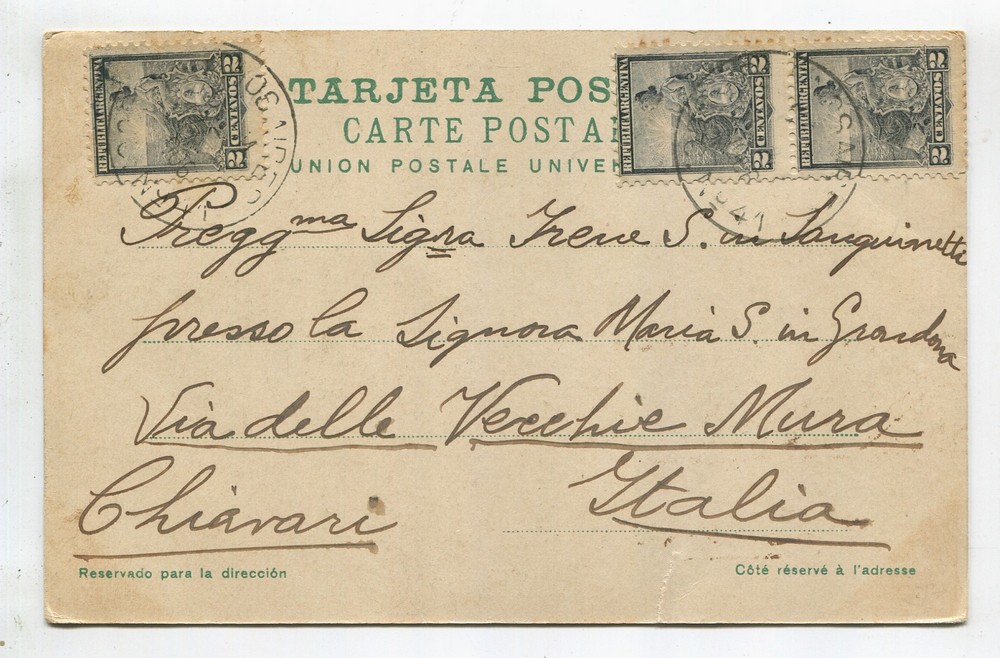 TARJETA POS
CARTE POSTA
UNION POSTALE UNIVE
REPUBLICA ARGENTINA 2 CENTAVOS 2
REPUBLICA ARGENTINA 2 CENTAVOS 2
REPUBLICA ARGENTINA 2 CENTAVOS 2
Pregg ma Sigra Irene S. in Sanguinetti
presso la Signora Maria S. in Grondona
Via delle Vecchie Mura
Chiavari Italia
Reservado para la dirección
Côté réservé à l'adresse